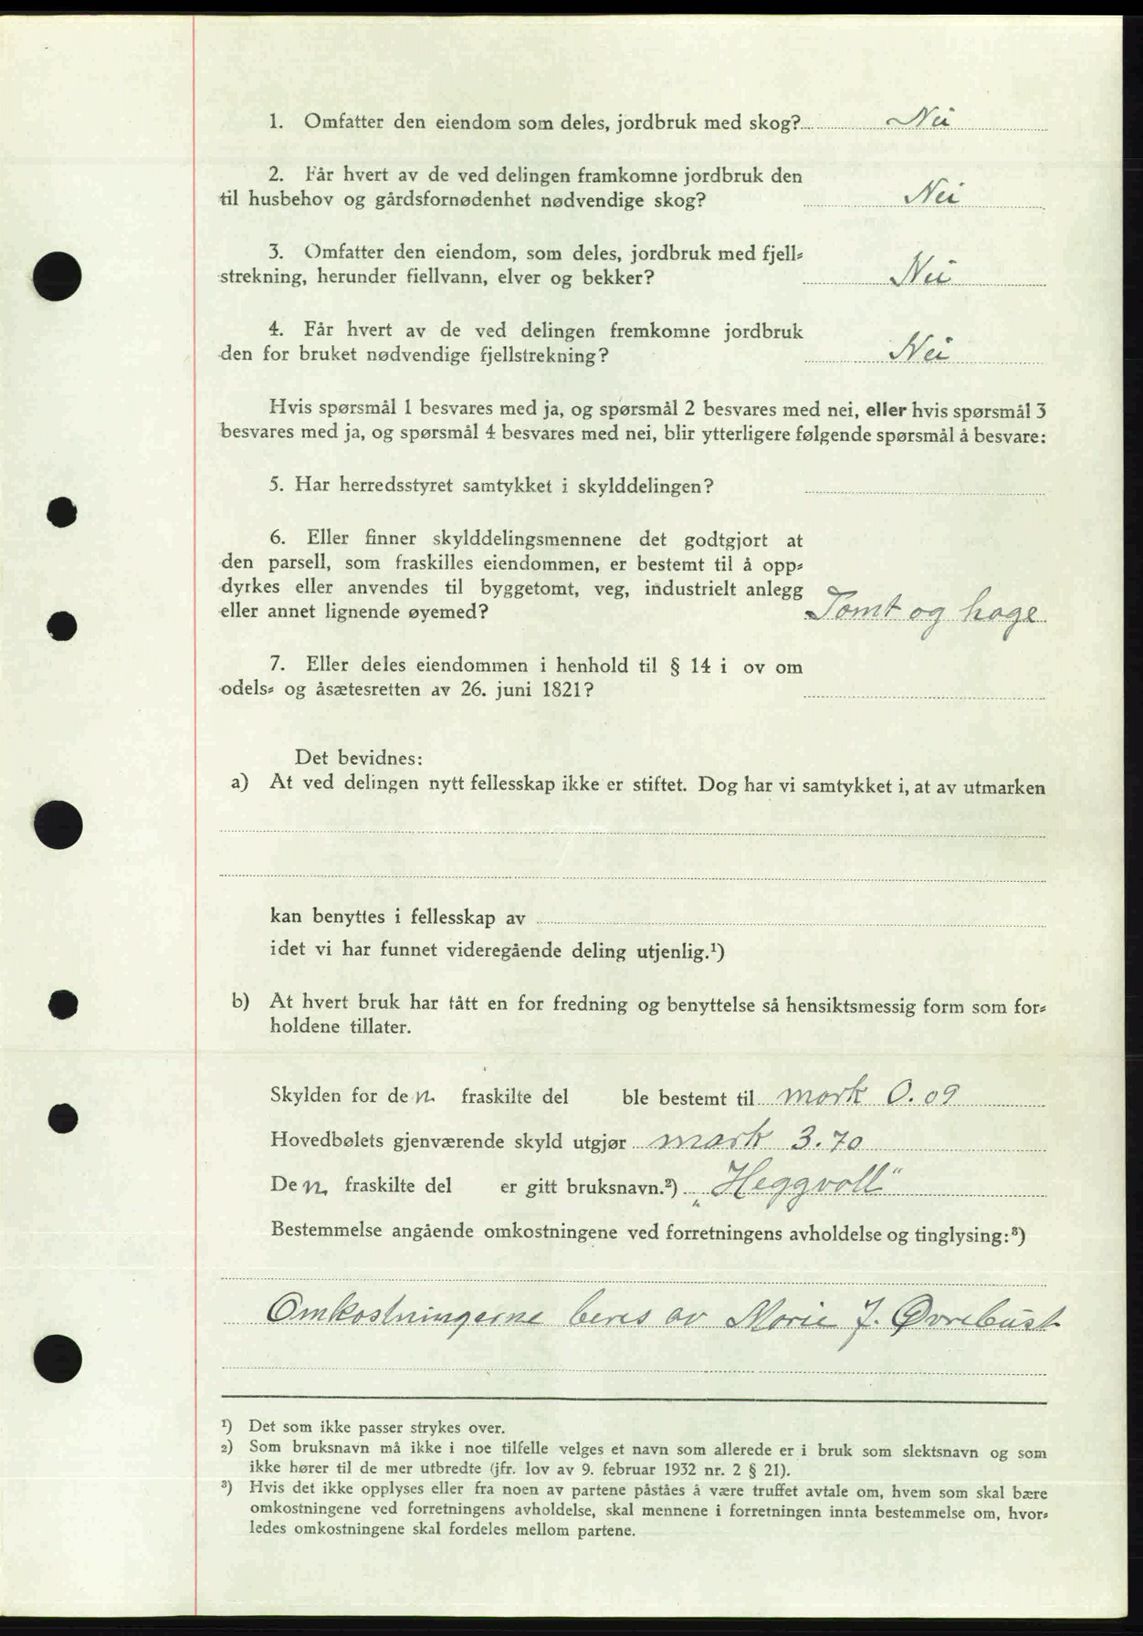 1. Omfatter den eiendom som deles, jordbruk med skog? Nei
2. Får hvert av de ved delingen framkomne jordbruk den
til husbehov og gårdsfornødenhet nødvendige skog? Nei
3. Omfatter den eiendom, som deles, jordbruk med fjell=
strekning, herunder fiellvann, elver og bekker? Nei
4. Får hvert av de ved delingen fremkomne jordbruk
den for bruket nødvendige fjellstrekning? Nei
Hvis spørsmål 1 besvares med ja, og spørsmål 2 besvares med nei, eller hvis spørsmål 3
besvares med ja, og spørsmål 4 besvares med nei, blir ytterligere følgende spørsmål å besvare:
5. Har herredsstyret samtykket i skylddelingen?
6. Eller finner skylddelingsmennene det godtgjort at
den parsell, som fraskilles eiendommen, er bestemt til å opp=
dyrkes eller anvendes til byggetomt, veg, industrielt anlegg
eller annet lignende øyemed? Tomt og hage
7. Eller deles eiendommen i henhold til § 14 i ov om
odels= og åsætesretten av 26. juni 1821?
Det bevidnes:
a) At ved delingen nytt fellesskap ikke er stiftet. Dog har vi samtykket i, at av utmarken
kan benyttes i fellesskap av
idet vi har funnet videregående deling utjenlig.¹)
b) At hvert bruk har fått en for fredning og benyttelse så hensiktsmessig form som for=
holdene tillater.
Skylden for den fraskilte del ble bestemt til mark 0.09
Hovedbølets gjenværende skyld utgjør mark 3.70
Den fraskilte del er gitt bruksnavn.²) „Heggvoll"
Bestemmelse angående omkostningene ved forretningens avholdelse og tinglysing:³)
Omkostningerne beres av Marie J. Øvrebust
¹) Det som ikke passer strykes over.
²) Som bruksnavn må ikke i noe tilfelle velges et navn som allerede er i bruk som slektsnavn og som
ikke hører til de mer utbredte (jfr. lov av 9. februar 1932 nr. 2 § 21).
³) Hvis det ikke opplyses eller fra noen av partene påståes å være truffet avtale om, hvem som skal bære
omkostningene ved forretningens avholdelse, skal mennene i forretningen innta bestemmelse om, hvor=
ledes omkostningene skal fordeles mellom partene.